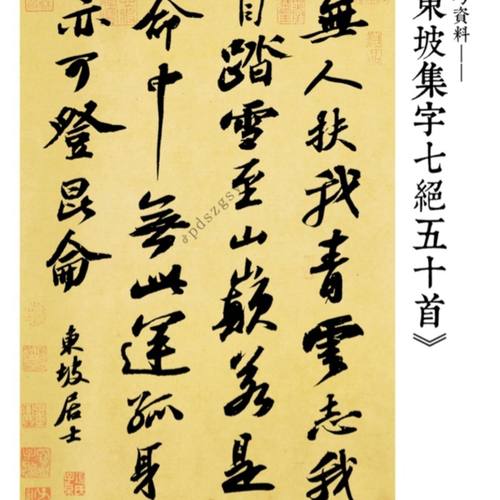 資料——
東坡集字七絕五十首》
無人扶我青雲志我
自踏雪至山巔若是
命中無此運孤身
亦可登昆侖
東坡居士
pdszgs